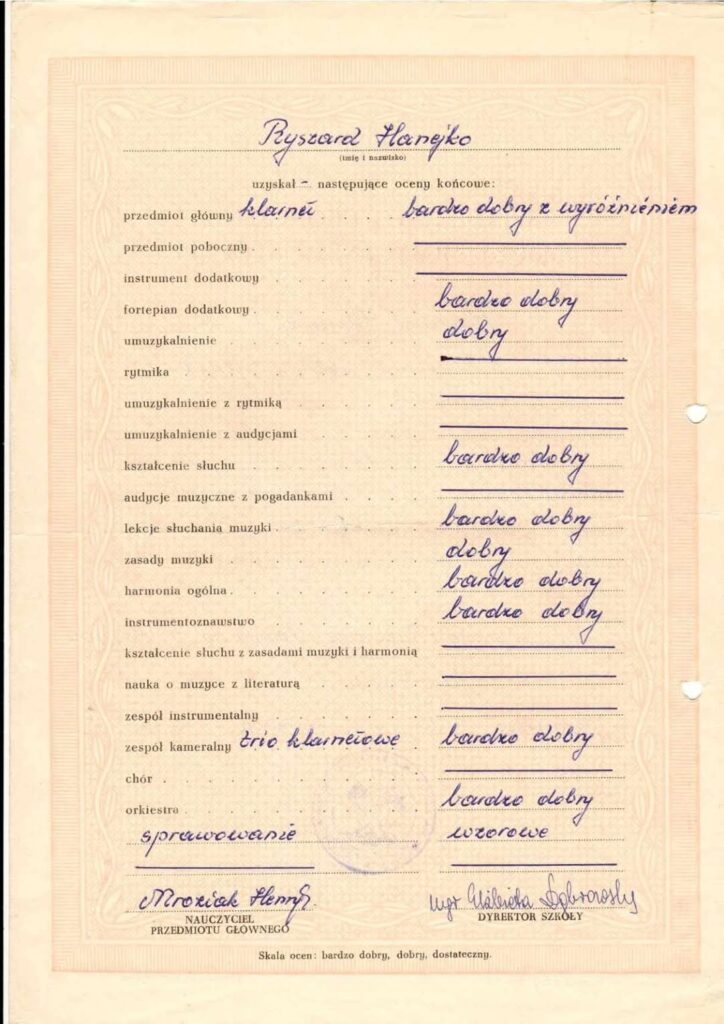 Ryszard Hanejko
(imię i nazwisko)
uzyskał - następujące oceny końcowe:
przedmiot główny klarnet . . . . bardzo dobry z wyróżnieniem
przedmiot poboczny
instrument dodatkowy
fortepian dodatkowy bardzo dobry
umuzykalnienie dobry
rytmika
umuzykalnienie z rytmiką
umuzykalnienie z audycjami
kształcenie słuchu bardzo dobry
audycje muzyczne z pogadankami
lekcje słuchania muzyki bardzo dobry
zasady muzyki dobry
harmonia ogólna bardzo dobry
instrumentoznawstwo bardzo dobry
kształcenie słuchu z zasadami muzyki i harmonią
nauka o muzyce z literaturą
zespół instrumentalny
zespół kameralny trio klarnetowe bardzo dobry
chór
orkiestra bardzo dobry
sprawowanie wzorowe
Mroziak mgr Elżbieta
NAUCZYCIEL DYREKTOR SZKOŁY
PRZEDMIOTU GŁÓWNEGO
Skala ocen: bardzo dobry, dobry, dostateczny.